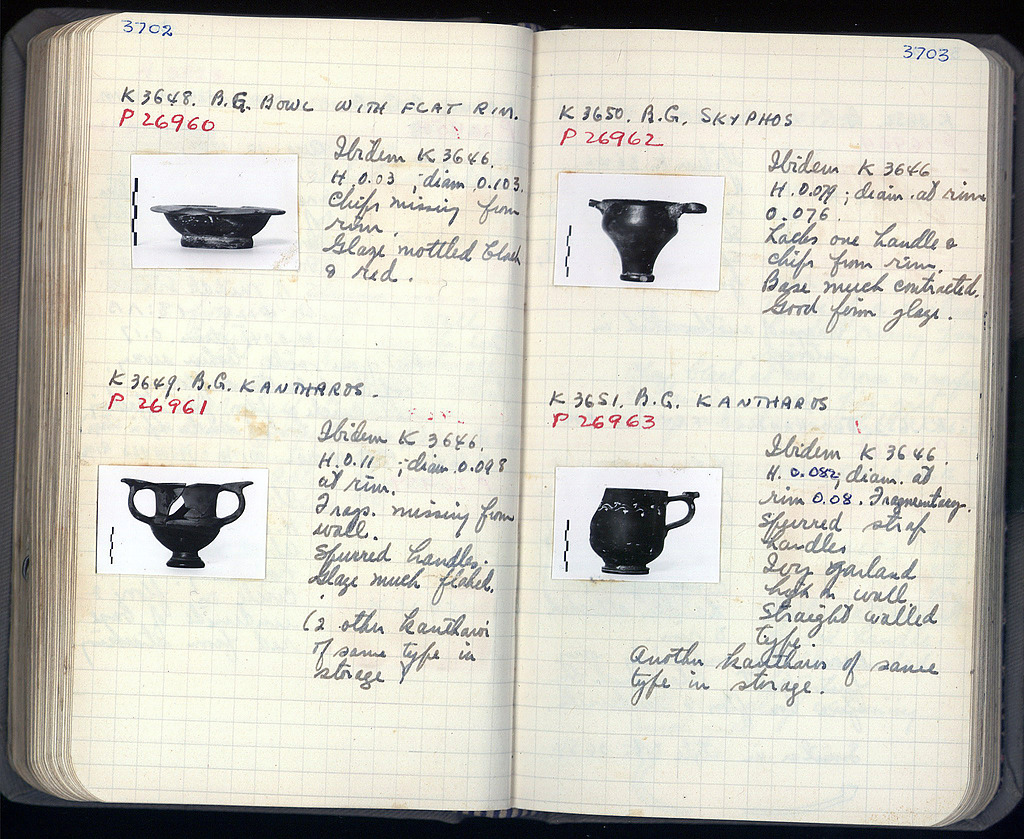 3702
K 3648. B.G. BOWL WITH FLAT RIM.
P 26960
Ibidem K 3646.
H. 0.03 ; diam. 0.103.
Chips missing from
rim.
Glaze mottled black
& red.
K 3649. B.G. KANTHAROS.
P 26961
Ibidem K 3646.
H. 0.11 ; diam. 0.098
at rim.
Frags. missing from
wall.
Spurred handles.
Glaze much flaked.
(2 other kantharoi
of same type in
storage)
3703
K 3650. B.G. SKYPHOS
P 26962
Ibidem K 3646
H. 0.079 ; diam. at rim
0.076.
Lacks one handle &
chips from rim.
Base much contracted.
Good firm glaze.
K 3651. B.G. KANTHAROS
P 26963
Ibidem K 3646.
H. 0.082; diam. at
rim 0.08. Fragmentary.
Spurred strap
handles
Ivy garland
high on wall
Straight walled
type.
Another kantharos of same
type in storage.